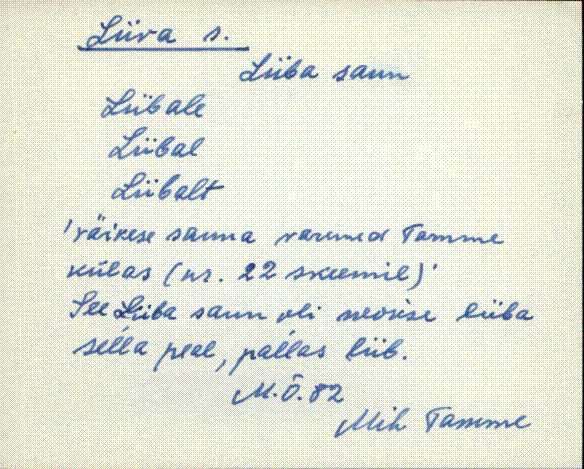 Liiva s.
Liiba saun
Liibale
Liibal
Liibalt
'väikese sauna varemed Tamme
külas (nr. 22 skeemil)'
See Liiba saun oli liiba
sella peal, pallas liib.
M.Õ.82
Mih Tamme